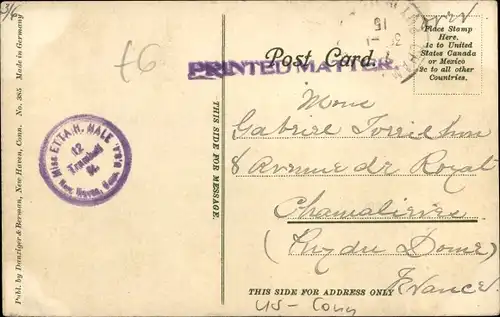 3/6
£6
Post Card.
PRINTED MATTER.
Place Stamp
Here.
1c to United
States Canada
or Mexico
2c to all other
Countries.
Publ. by Danziger & Berman, New Haven, Conn. No. 365 Made in Germany
Miss ETTA H. HALE
12
Trumbull
St.
New Haven, Conn.
THIS SIDE FOR MESSAGE.
Mme
Gabriel
8 Avenue de Royat
Chamalières
(Puy du Dome)
France
THIS SIDE FOR ADDRESS ONLY
US - Conn